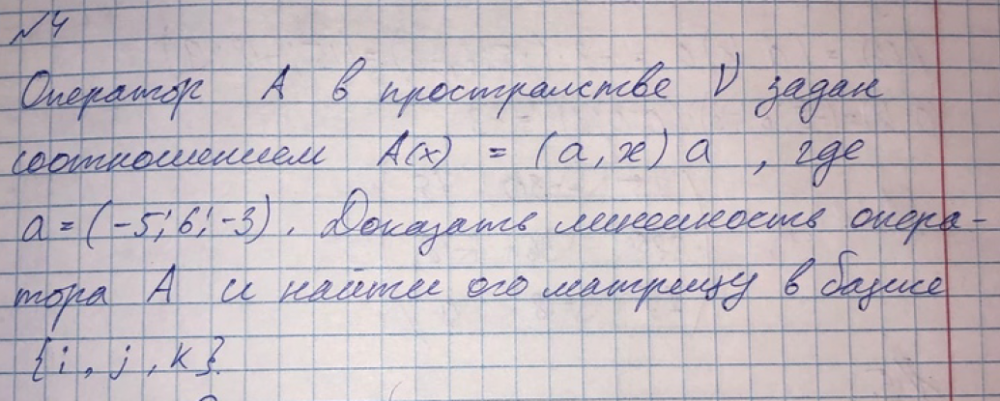 №4
Оператор A в пространстве V задан
соотношением A(x) = (a, x) a , где
a = (-5; 6; -3). Доказать линейность опера-
тора A и найти его матрицу в базисе
{i, j, k}.